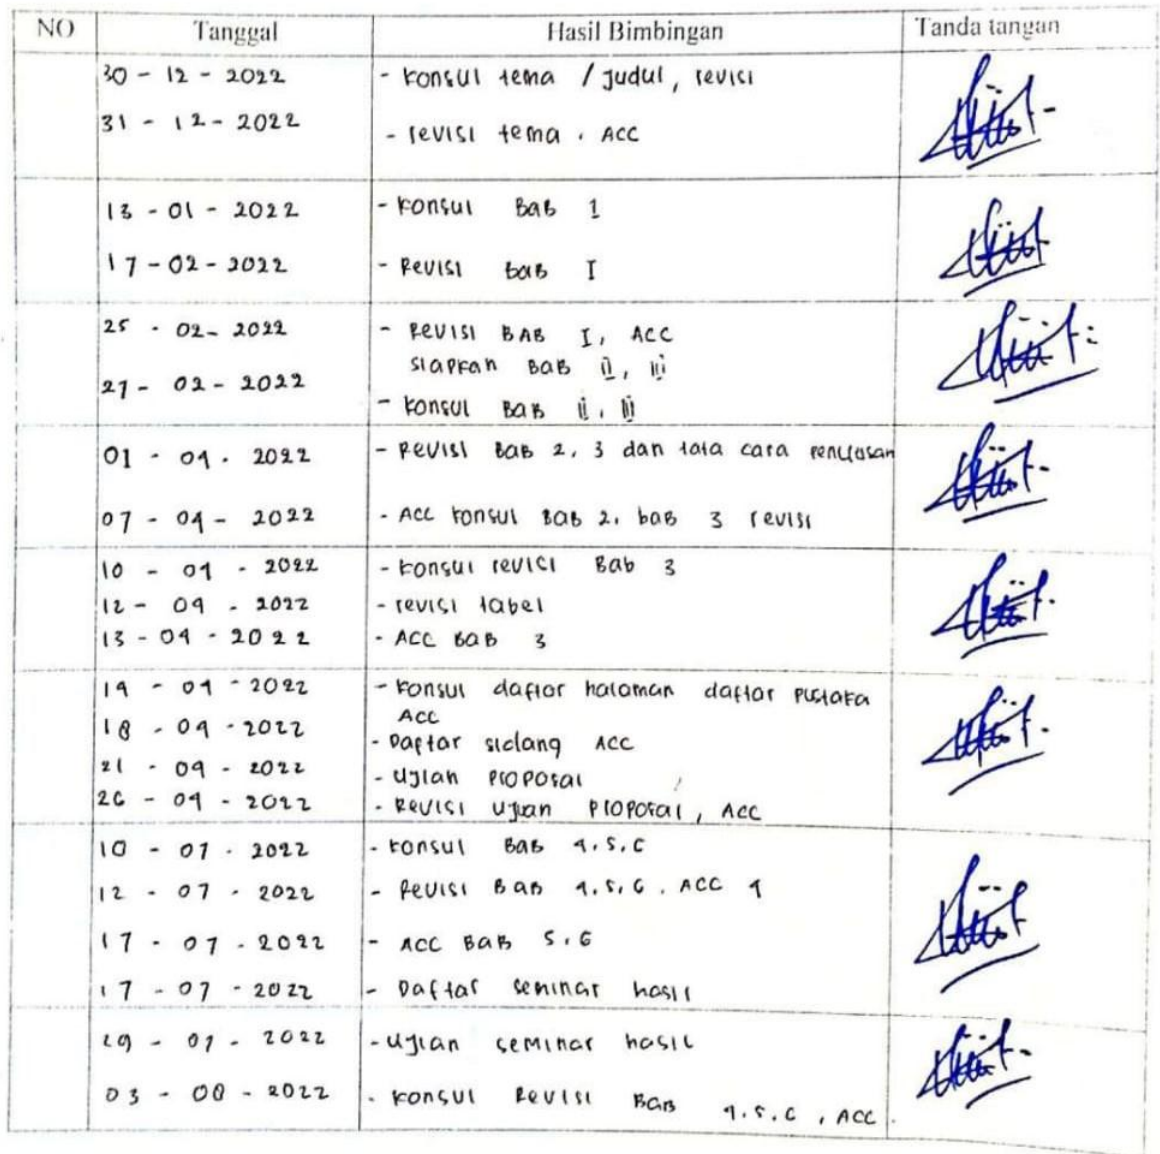 NO Tanggal Hasil Bimbingan Tanda tangan
30 - 12 - 2022 - konsul tema / judul, revisi
31 - 12 - 2022 - revisi tema . ACC
13 - 01 - 2022 - konsul BaB 1
17 - 02 - 2022 - Revisi baB I
25 - 02 - 2022 - Revisi BAB I, ACC
siapkan BaB ii, iii
27 - 02 - 2022 - konsul BaB ii, iii
01 - 04 - 2022 - Revisi BaB 2, 3 dan tata cara
07 - 04 - 2022 - ACC konsul BaB 2, bab 3 revisi
10 - 04 - 2022 - konsul revisi Bab 3
12 - 04 - 2022 - revisi tabel
13 - 04 - 2022 - ACC BaB 3
14 - 04 - 2022 - konsul daftar halaman daftar pustaka
ACC
18 - 04 - 2022 - Daftar sidang ACC
21 - 04 - 2022 - Ujian proposal
26 - 04 - 2022 - Revisi ujian proposal, ACC
10 - 07 - 2022 - konsul BaB 4.5.6
12 - 07 - 2022 - Revisi BaB 4.5.6. ACC 4
17 - 07 - 2022 - ACC BaB 5.6
17 - 07 - 2022 - Daftar seminar hasil
29 - 07 - 2022 - Ujian seminar hasil
03 - 08 - 2022 - konsul Revisi BaB 4.5.6, ACC.